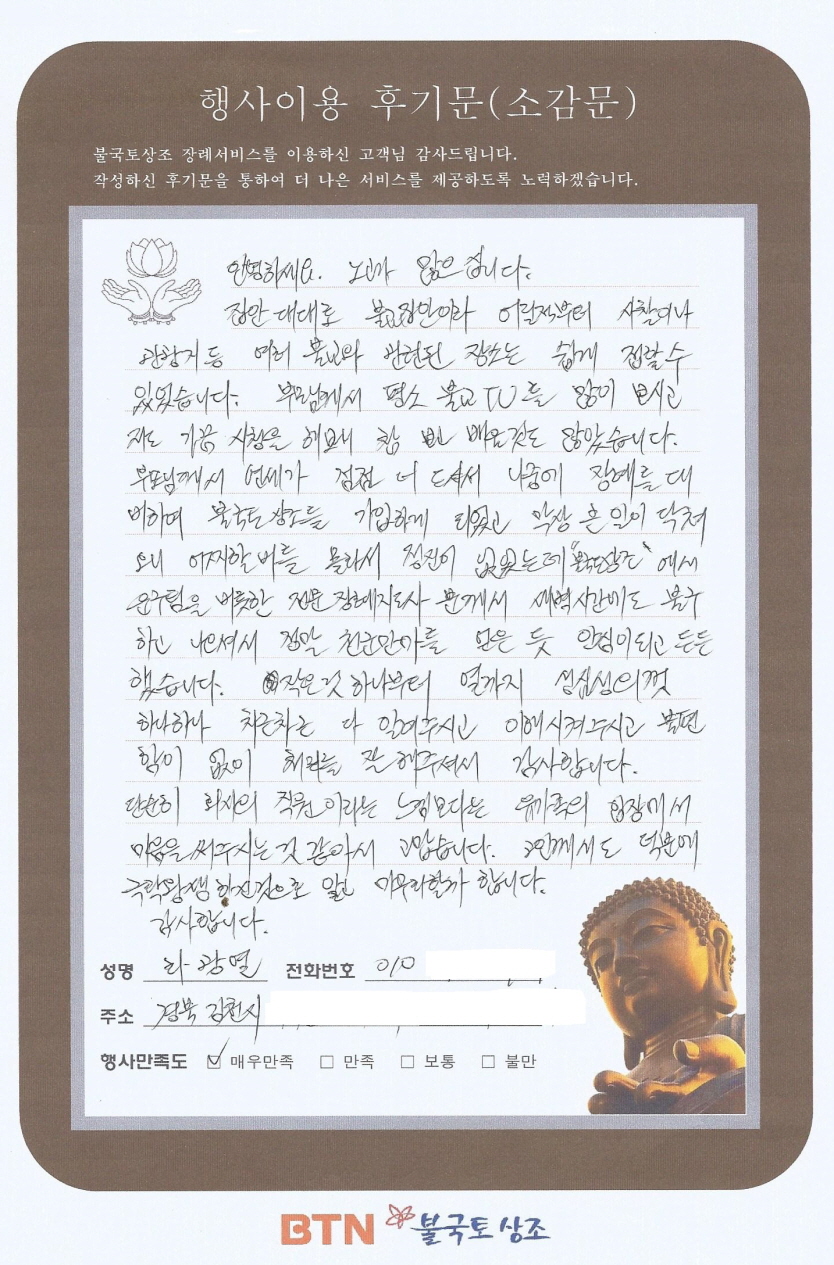 행사이용 후기문(소감문)
불국토상조 장례서비스를 이용하신 고객님 감사드립니다.
작성하신 후기문을 통하여 더 나은 서비스를 제공하도록 노력하겠습니다.
안녕하세요. 노고가 많으십니다.
집안 대대로 불교집안이라 어릴적부터 사찰이나
관광지등 여러 불교와 관련된 장소는 쉽게 접할수
있었습니다. 부모님께서 평소 불교 TV를 많이 보시고
저도 가끔 시청을 해보니 참 배울것도 많았습니다.
부모님께서 연세가 점점 더 드셔서 나중에 장례를 대
비하여 불국토상조를 가입하게 되었고 막상 큰일이 닥쳐
오니 어찌할바를 몰라서 정신이 없었는데 "불국토상조"에서
운구팀을 비롯한 전문 장례지도사 분께서 새벽시간에도 불구
하고 나오셔서 정말 천군만마를 얻은 듯 안정이되고 든든
했습니다. 작은것 하나부터 열까지 성심성의껏
하나하나 차근차근 다 일러주시고 이해시켜주시고 불편
함이 없이 처리를 잘 해주셔서 감사합니다.
단순히 회사의 직원이라는 느낌보다는 유가족의 입장에서
마음을 써주시는 것 같아서 고맙습니다. 고인께서도 덕분에
극락왕생 하신것으로 알고 마무리할까 합니다.
감사합니다.
성명 라광열 전화번호 010
주소 경북 김천시
행사만족도 ☑ 매우만족 □ 만족 □ 보통 □ 불만
BTN 불국토상조